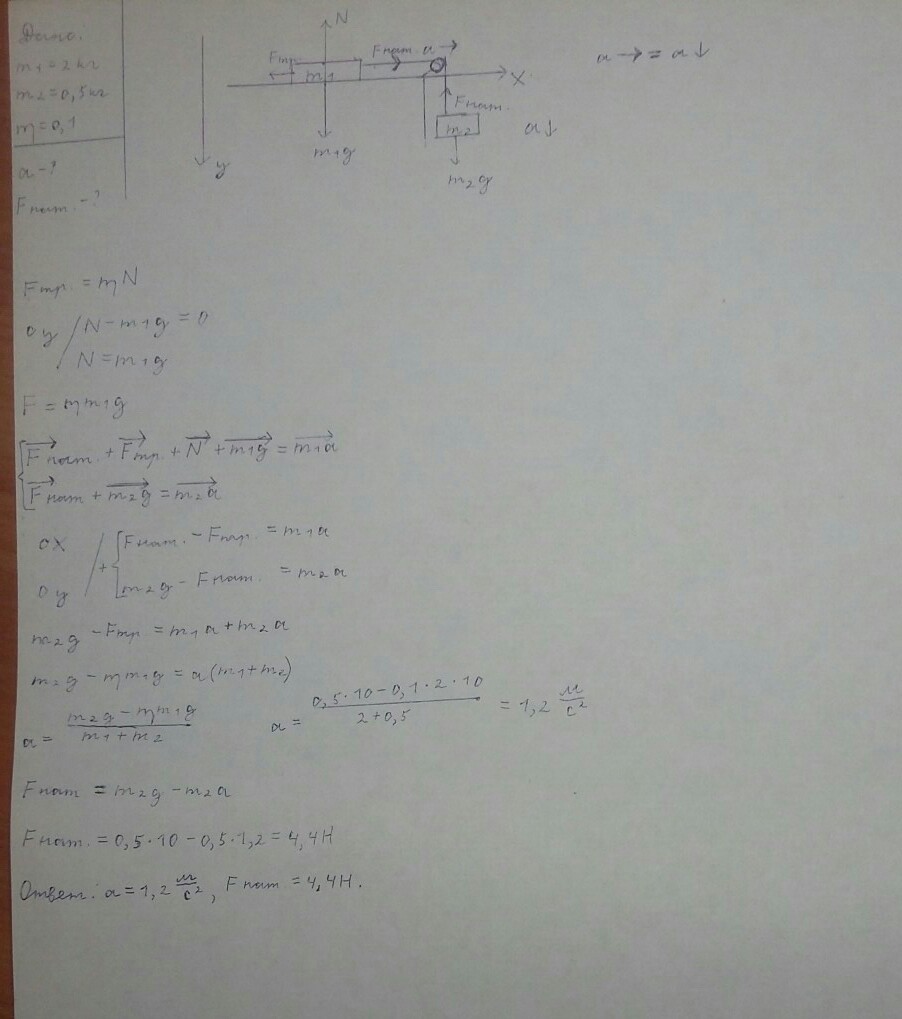 Дано:
m₁=2 кг
m₂=0,5кг
η=0,1
a-?
Fнат.-?
N
Fтр.
m₁
Fнат. a →
X
a → = a ↓
Fнат.
m₂
a↓
m₁g
m₂g
y
Fтр. = ηN
oy / N-m₁g = 0
N=m₁g
F = ηm₁g
Fнат. + Fтр. + N + m₁g = m₁a
Fнат + m₂g = m₂a
ox / + Fнат. - Fтр. = m₁a
oy m₂g - Fнат. = m₂a
m₂g - Fтр = m₁a + m₂a
m₂g - ηm₁g = a(m₁+m₂)
a = (m₂g - ηm₁g)/(m₁+m₂) a = (0,5·10-0,1·2·10)/(2+0,5) = 1,2 м/с²
Fнат = m₂g - m₂a
Fнат. = 0,5·10 - 0,5·1,2 = 4,4Н
Ответ: a=1,2 м/с², Fнат = 4,4Н.